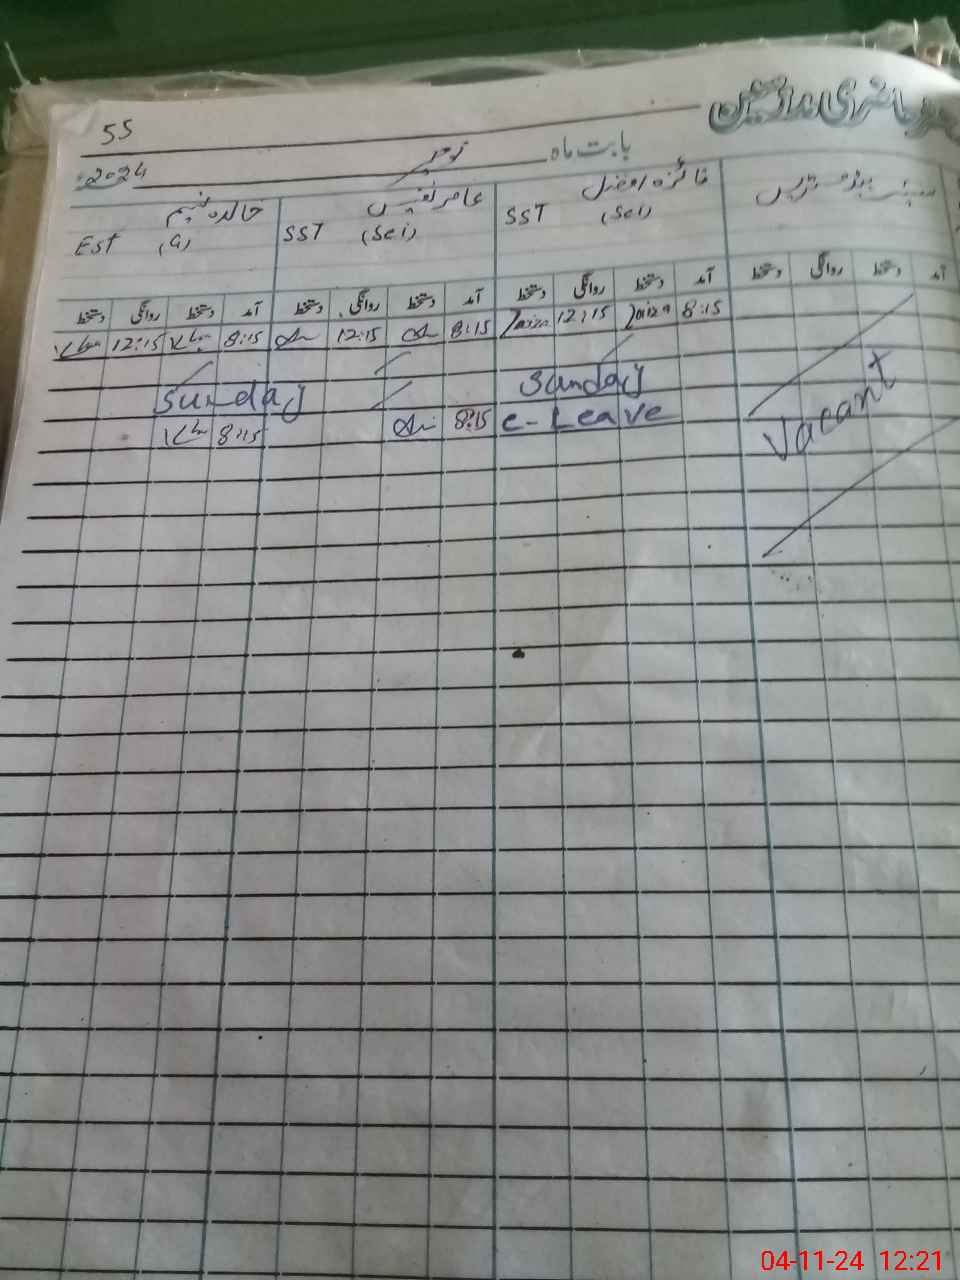 55
حاضری مدرسین
بابت ماہ نومبر 2024ء
سینئر ہیڈمسٹریس
فائزہ افضل
SST (Sci)
عامر نفیس
SST (Sci)
خالدہ نسیم
EST (G)
آمد دستخط روانگی دستخط آمد دستخط روانگی دستخط آمد دستخط روانگی دستخط آمد دستخط روانگی دستخط
8:15 Faiza 12:15 Faiza 8:15 12:15 8:15 12:15
Sunday Sunday
C-Leave 8:15 8:15
Vacant
04-11-24 12:21